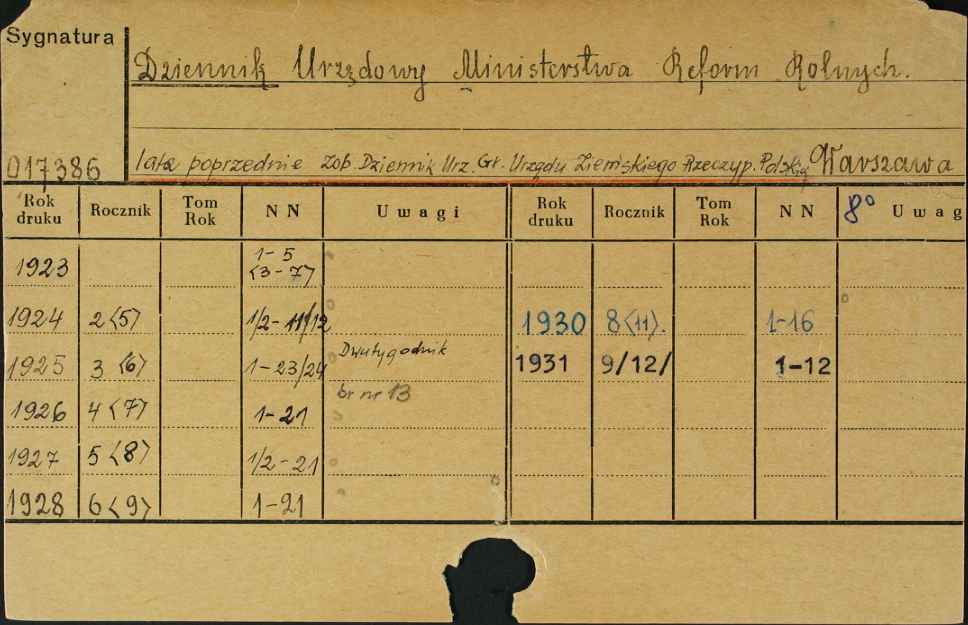 Sygnatura
Dziennik Urzędowy Ministerstwa Reform Rolnych.
017386
lata poprzednie zob. Dziennik Urz. Gł. Urzędu Ziemskiego Rzeczyp. Polskiej Warszawa
Rok druku Rocznik Tom Rok NN Uwagi Rok druku Rocznik Tom Rok NN 8° Uwag
1923 1-5 <3-7>
1924 2<5> 1/2-11/12 1930 8<11>. 1-16
1925 3<6> 1-23/24 Dwutygodnik 1931 9/12/ 1-12
1926 4<7> 1-21 br nr 13
1927 5<8> 1/2-21
1928 6<9> 1-21